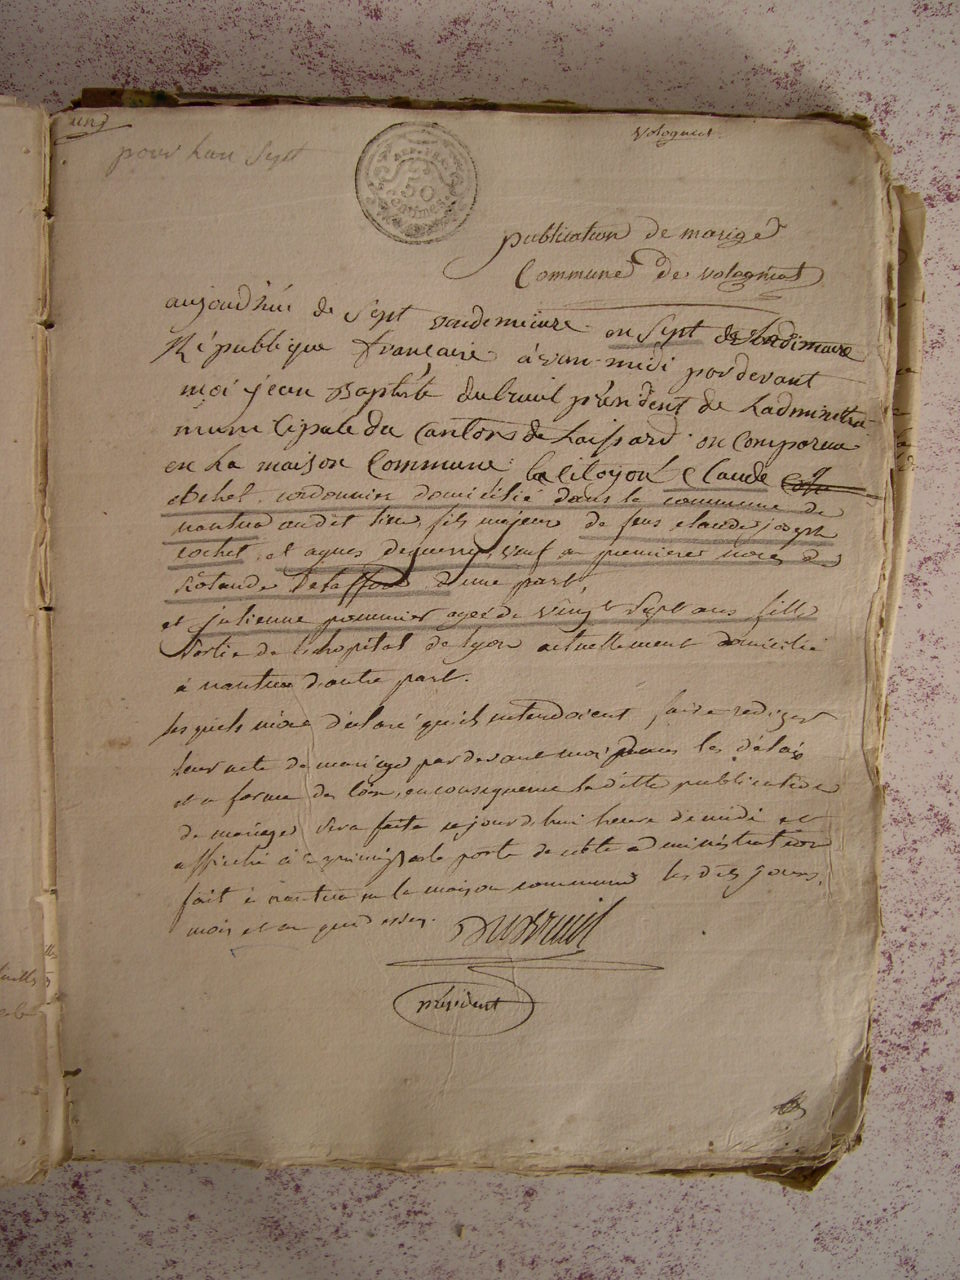 un
Volognat
pour Lan Sept
REP. FRA.
50
centimes
publication de mariage
Commune de volognat
aujourd'hui de Sept vendemiaire an Sept de La
République francaise avan-midi pardevant
moi jean Baptiste dubreuil président de Ladministra
municipale du Cantons de Laissard on Comparu
en La maison Commune le Citoyen Claude
cochet cordonnier domicilié dans la commune de
nantua audit lieu, fils majeur de feus claude joseph
cochet, et agnes deguerry, veuf en premiere noces de
d'une part
et julienne pommier agée de vingt Sept ans, fille
Sortie de L'hopital de lyon actuellement domicilié
à nantua d'autre part.
lesquels mont déclaré qu'ils entendoient faire rediger
leur acte de mariage pardevant moi dans les délais
et a forme des loix, en consequence ladille publication
de mariage sera faite cejourdhui heure de midi et
affiché à la porte de cette administration
fait à nantua en la maison commune les dits jours,
mois et an que dessus.
Dubreuil
président